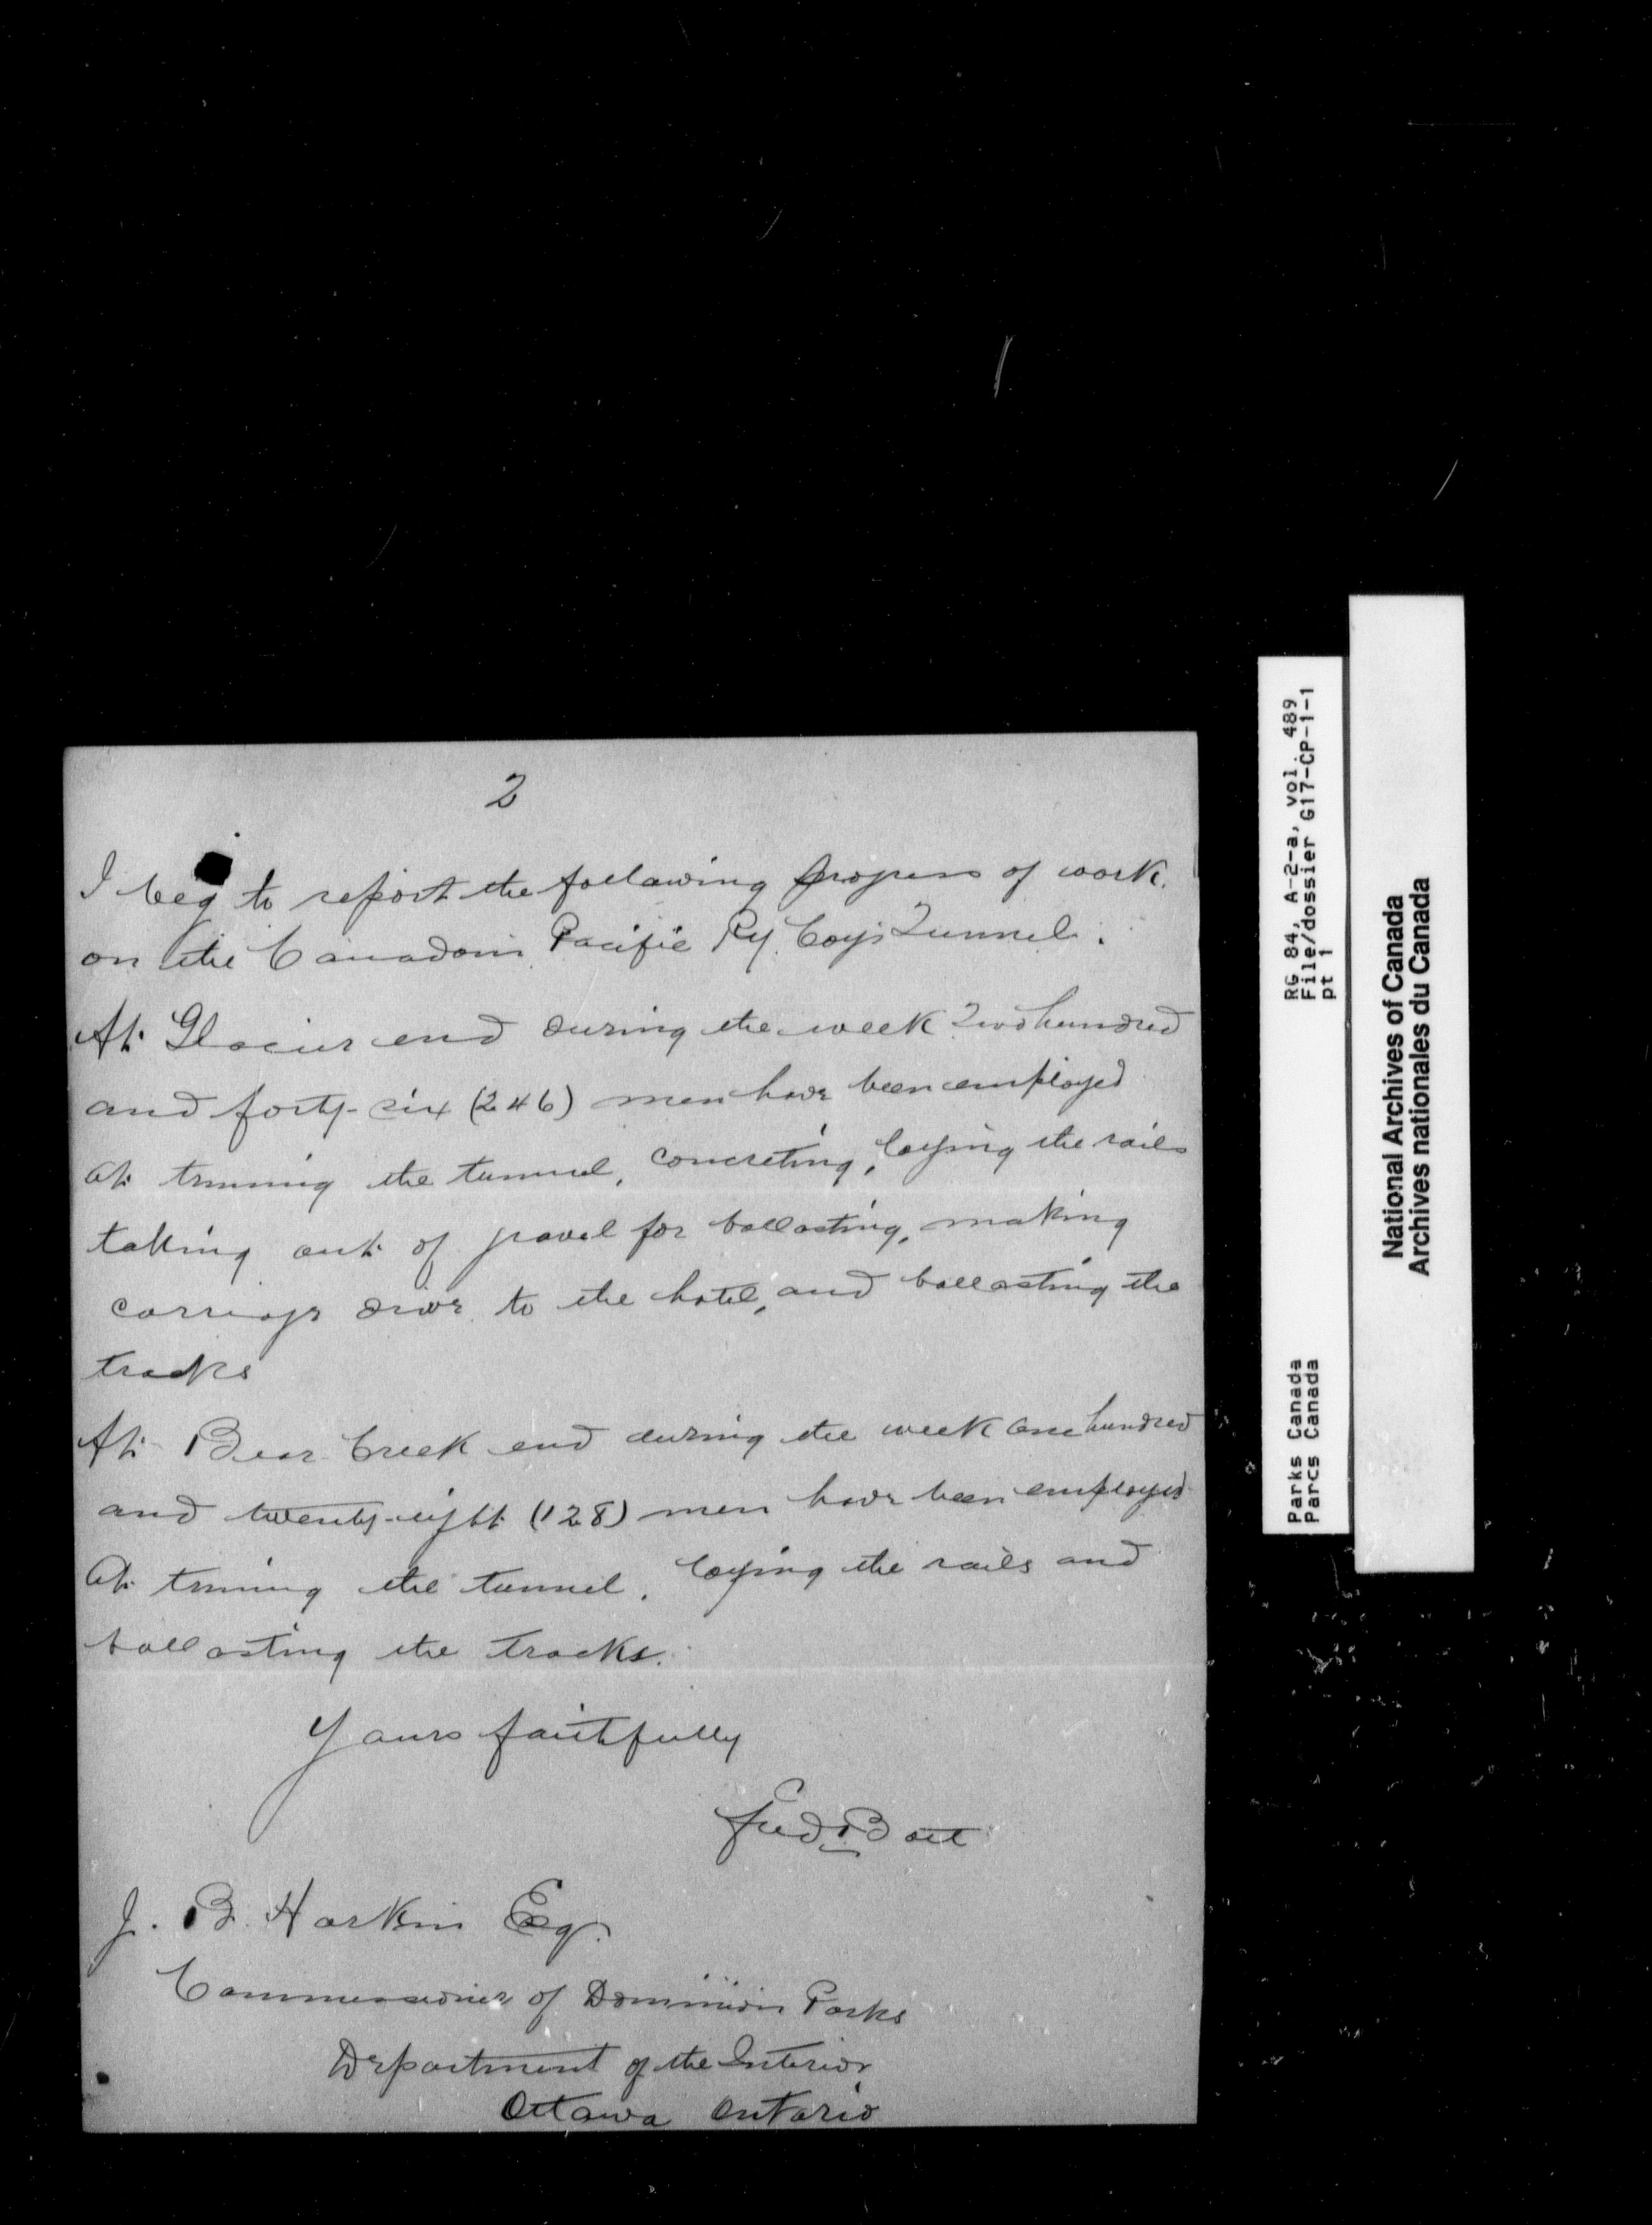 2
I beg to report the following progress of work.
on the Canadain Pacific Ry. Coy's Tunnel.
At Glacier end during the week Two hundred
and forty-six (246) men have been employed
at triming the tunnel, concreting, laying the rails
taking out of gravel for ballasting, making
carriage drive to the hotel, and ballasting the
tracks
At Bear Creek end during the week One hundred
and twenty-eight (128) men have been employed
At triming the tunnel, laying the rails and
ballasting the tracks.
Yours faithfully
J. B. Harkin Esq.
Commissioner of Dominion Parks
Department of the Interior
Ottawa Ontario
RG 84, A-2-a, vol. 489
File/dossier G17-CP-1-1
pt 1
Parks Canada
Parcs Canada
National Archives of Canada
Archives nationales du Canada